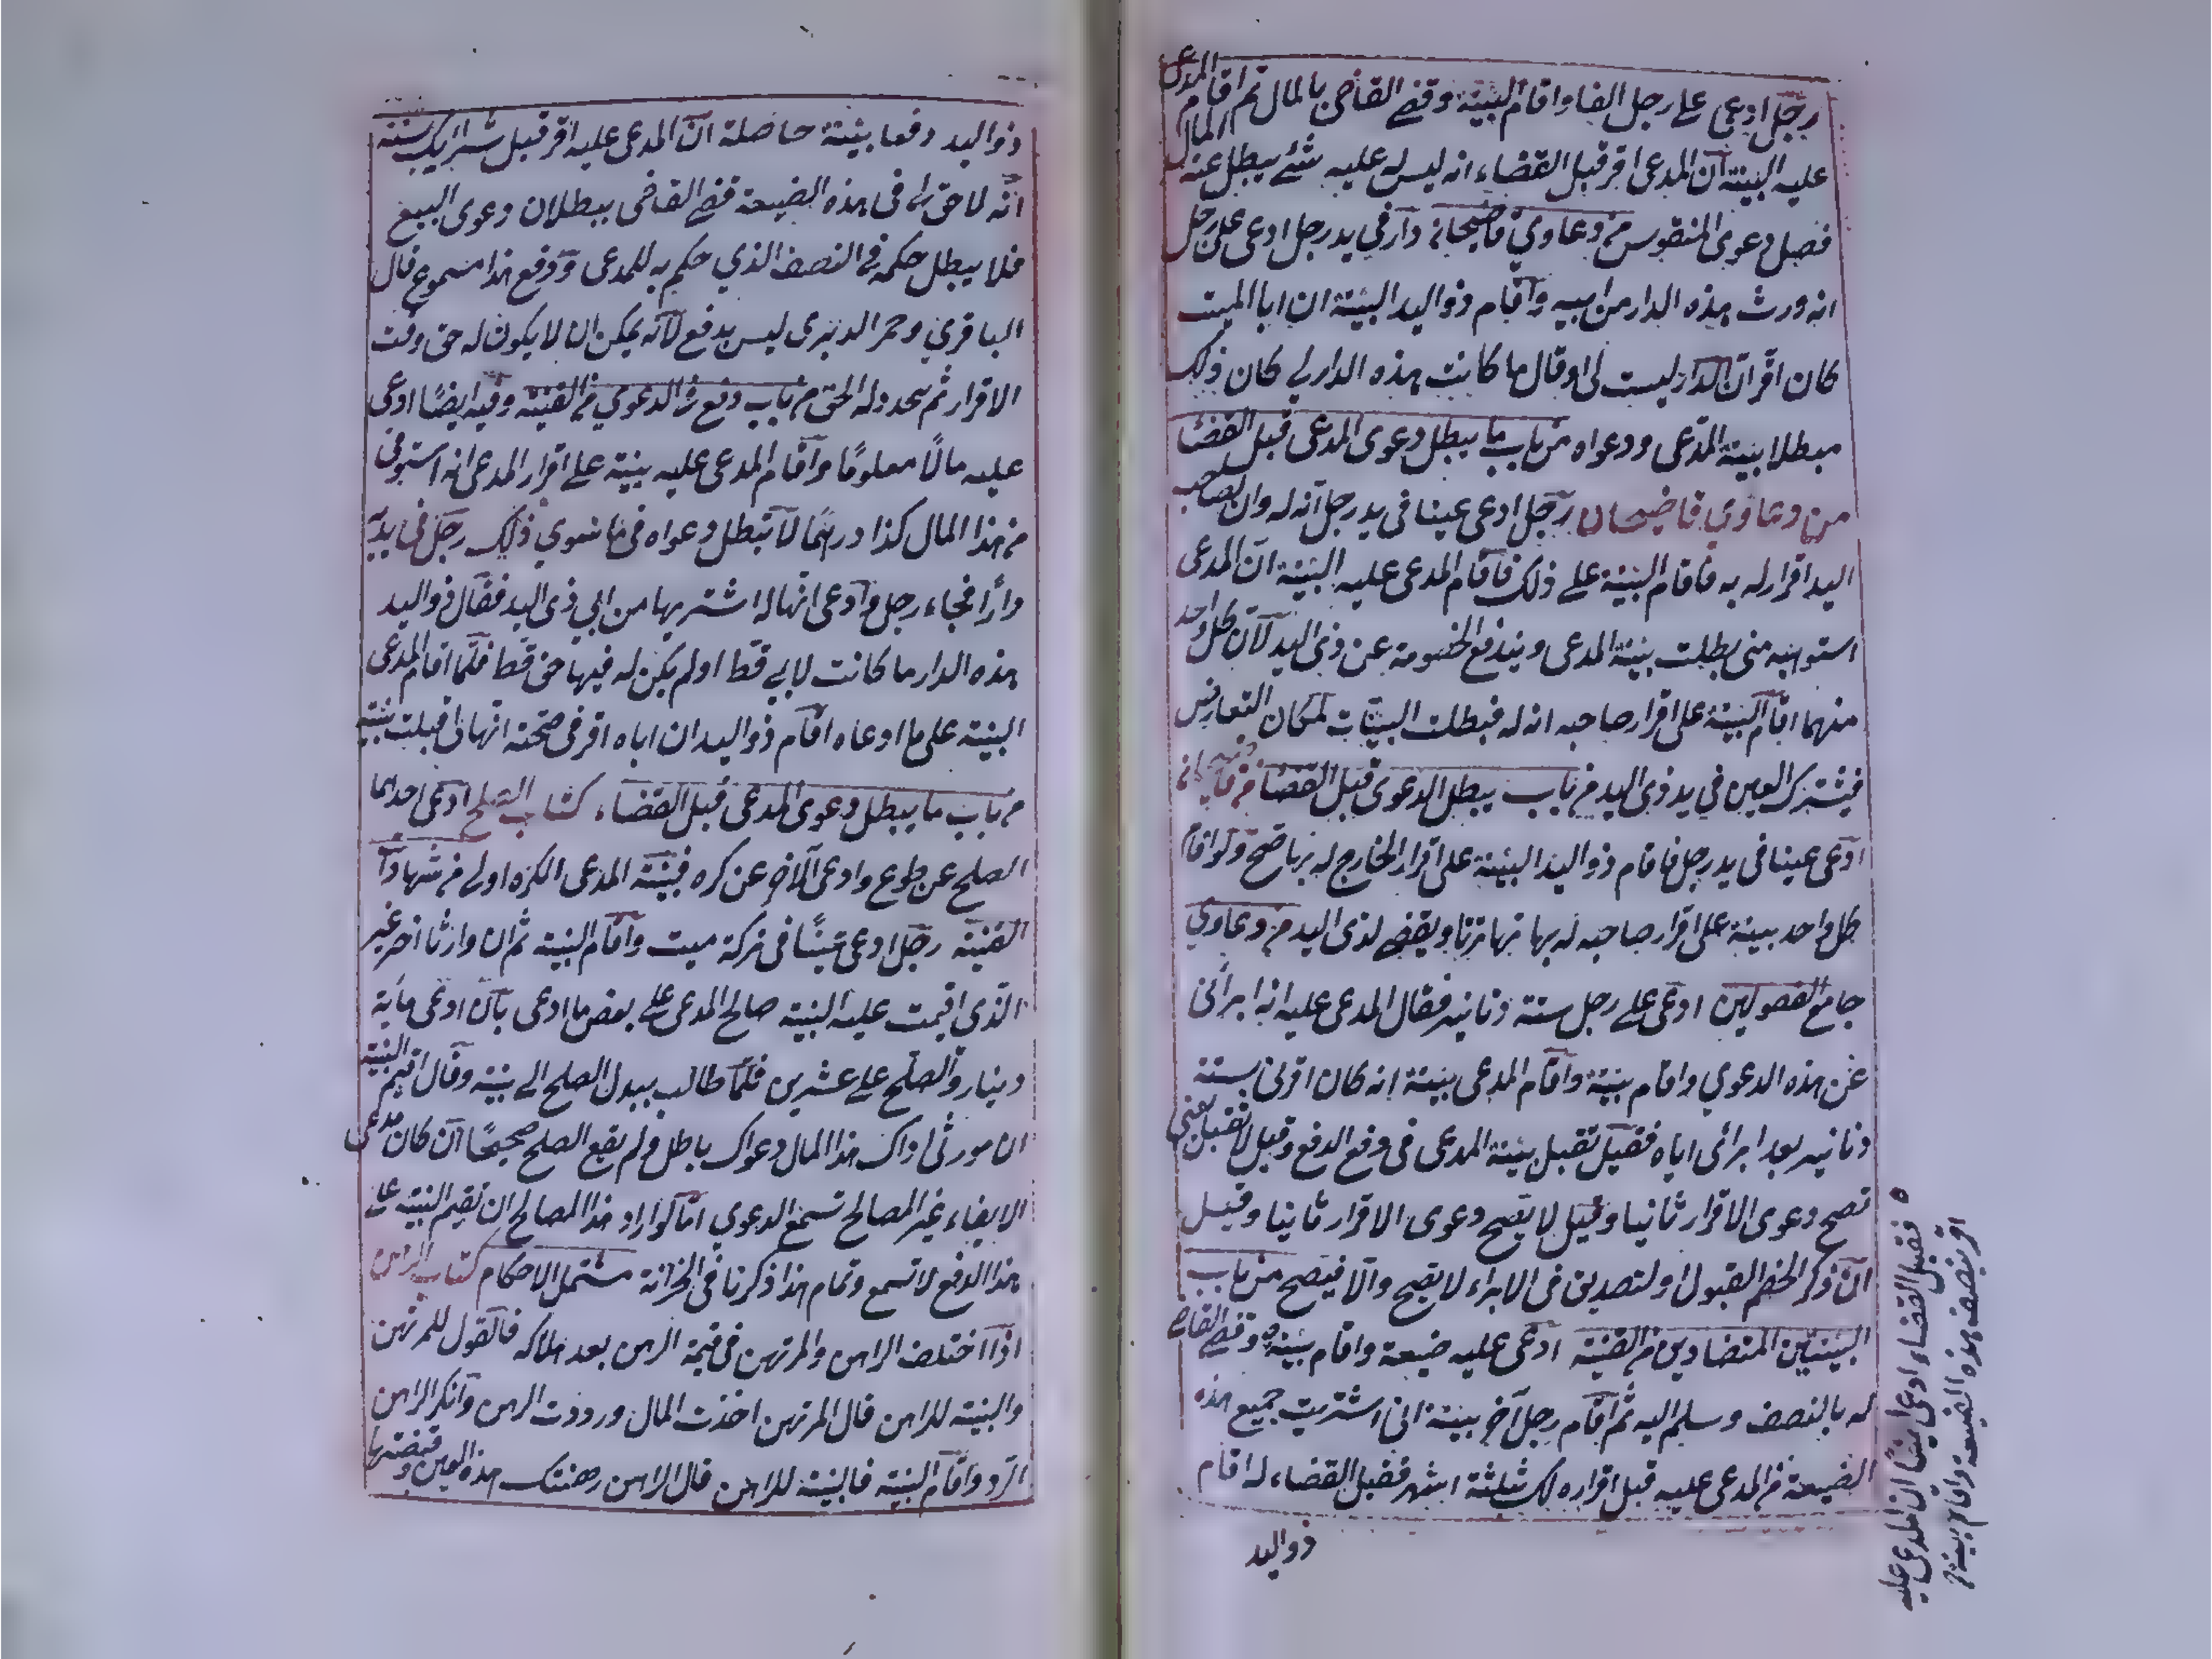 رجل ادعى على رجل الفا واقام البينة وقضى القاضى بالمال ثم اقام المدعى
عليه البينة ان المدعى اقر قبل القضاء انه ليس له عليه شئ يبطل عنه المال
فصل دعوى المنقوس من دعاوي قاضيخان دار في يد رجل ادعى على رجل
انه ورث هذه الدار من ابيه واقام ذو اليد البينة ان ابا الميت
كان اقر ان الدار ليست لى او قال ما كانت هذه الدار لى كان ذلك
مبطلا بينة المدعى ودعواه من باب ما يبطل دعوى المدعى قبل القضا
من دعاوي قاضيخان رجل ادعى عينا فى يد رجل انه له وان لصاحب
اليد اقرار له به فاقام البينة على ذلك فاقام المدعى عليه البينة ان المدعى
استوهبه منى بطلت بينة المدعى ويندفع الخصومة عن ذى اليد لان كل واحد
منهما اقام البينة على اقرار صاحبه انه له فبطلت البينات لمكان التعارض
فيترك العين في يد ذى اليد من باب يبطل الدعوى قبل القضا من
ادعى عينا فى يد رجل فاقام ذو اليد البينة على اقرار الخارج له بها صح ولو اقام
كل واحد بينة على اقرار صاحبه له بها تهاترتا ويقضى لذى اليد من دعاوي
جامع الفصولين ادعى على رجل ستة دنانير فقال المدعى عليه انه ابرأنى
عن هذه الدعوي واقام بينة واقام المدعى بينة انه كان اقر لى بستة
دنانير بعد ابرائى اياه فقيل تقبل بينة المدعى فى دفع الدفع وقيل لا تقبل يعنى
تصح دعوى الاقرار ثانيا وقيل لا يصح دعوى الاقرار ثانيا وقيل
ان ذكر الخصم القبول او لتصديق فى الابراء لا يصح والا فيصح من باب
البينتين المتضادين من القنية ادعى عليه ضيعة واقام بينة وقضى القاضى
له بالنصف وسلم اليه ثم اقام رجل آخر بينة انى اشتريت جميع هذه
الضيعة من المدعى عليه قبل اقراره لك بثلثة اشهر فقبل القضاء له اقام
ذو اليد
فقبل القضاء ادعى ايضا ان المدعى عليه
اقر بنصف هذه الضيعة واقام بينة
ذو اليد دفعا بينة حاصلة ان المدعى عليه اقر قبل شرائك بسنة
انه لا حق لى فى هذه الضيعة قضى القاضى ببطلان دعوى البيع
فلا يبطل حكمه فى النصف الذي حكم به للمدعى ودفع هذا مسموع قال
الباقري وحمر الدبرى ليس بدفع لانه يمكن ان لا يكون له حق وقت
الاقرار ثم يحدد له الحق من باب دفع الدعوي من القنية وفيه ايضا ادعى
عليه مالا معلوما واقام المدعى عليه بينة على اقرار المدعى انه استوفى
من هذا المال كذا درهما لا تبطل دعواه فى ما سوي ذلك رجل فى يديه
دارا فجاء رجل وادعى انها له اشتريها من ابي ذى اليد فقال ذو اليد
هذه الدار ما كانت لابى قط او لم يكن له فيها حق قط فلما اقام المدعى
البينة على ما ادعاه اقام ذو اليد ان اباه اقر فى صحته انها لى قبلت بينته
من باب ما يبطل دعوى المدعى قبل القضاء كتاب الصلح ادعى احدهما
الصلح عن طوع وادعى الآخر عن كره فبينة المدعى الكره اولى من شهادات
القنية رجل ادعى شيئا فى تركة ميت واقام البينة ثم ان وارثا اخر غير
الذي اقيمت عليه البينة صالح المدعى على بعض ما ادعى بان ادعى مأية
دينار والصلح على عشرين فلما طالب ببدل الصلح الى بينة وقال اقيم البينة
ان مورثى اداك هذا المال دعواك باطل ولم يقع الصلح صحيحا ان كان مدعى
الايفاء غير المصالح تسمع الدعوي اما لو اراد هذا المصالح ان تقيم البينة على
هذا الدفع لا تسمع وتمام هذا ذكرنا فى الخزانة مشتمل الاحكام كتاب الرهن
اذا اختلف الراهن والمرتهن فى قيمة الرهن بعد هلاكه فالقول للمرتهن
والبينة للراهن قال المرتهن اخذت المال ورددت الرهن وانكر الراهن
الرد واقام البينة فالبينة للراهن قال الراهن رهنتك هذه العين وقبضتها